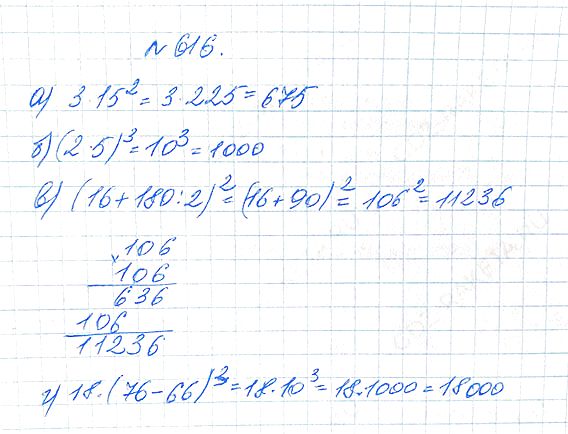 № 616.
а) 3·15² = 3·225 = 675
б) (2·5)³ = 10³ = 1000
в) (16+180:2)² = (16+90)² = 106² = 11236
×106
106
636
106
11236
г) 18·(76-66)³ = 18·10³ = 18·1000 = 18000